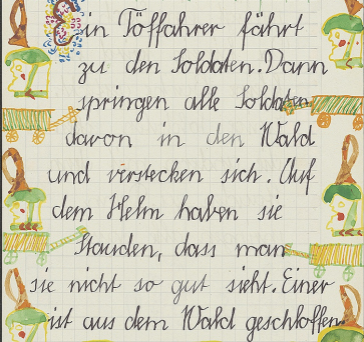 Ein Töffahrer fährt
zu den Soldaten. Dann
springen alle Soldaten
davon in den Wald
und verstecken sich. Auf
dem Helm haben sie
Stauden, dass man
sie nicht so gut sieht. Einer
ist aus dem Wald geschloffen.